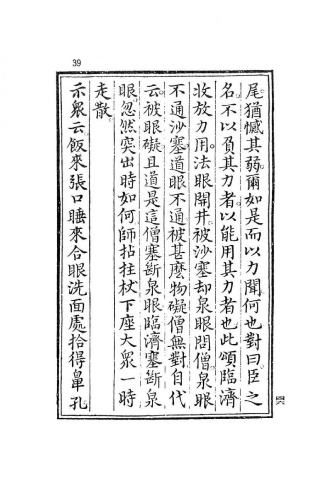 39
尾猶憾其弱爾如是而以力聞何也對曰臣之
名不以負其力者以能用其力者也此頌臨濟
收放力用法眼開井被沙塞却泉眼問僧泉眼
不通沙塞道眼不通被甚麼物礙僧無對自代
云被眼礙且道是這僧塞斷泉眼臨濟塞斷泉
眼忽然突出時如何師拈拄杖下座大衆一時
走散
示衆云飯來張口睡來合眼洗面處拾得鼻孔
四六